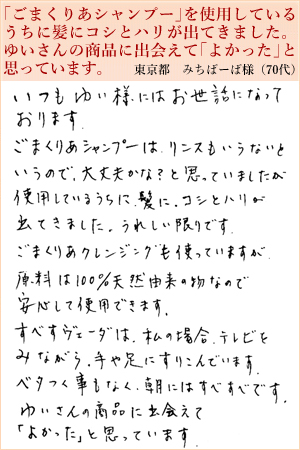 「ごまくりあシャンプー」を使用している
うちに髪にコシとハリが出てきました。
ゆいさんの商品に出会えて「よかった」と
思っています。 東京都 みちばーば様（70代）
いつもゆい様にはお世話になって
おります。
ごまくりあシャンプーは、リンスもいらないと
いうので、大丈夫かな？と思っていましたが
使用しているうちに、髪に、コシとハリが
出てきました。うれしい限りです。
ごまくりあクレンジングも使っていますが
原料は100%天然由来の物なので
安心して使用できます。
すべすヴェーダは、私の場合、テレビを
みながら、手や足にすりこんでいます。
ベタつく事もなく、朝にはすべすべです。
ゆいさんの商品に出会えて
「よかった」と思っています。